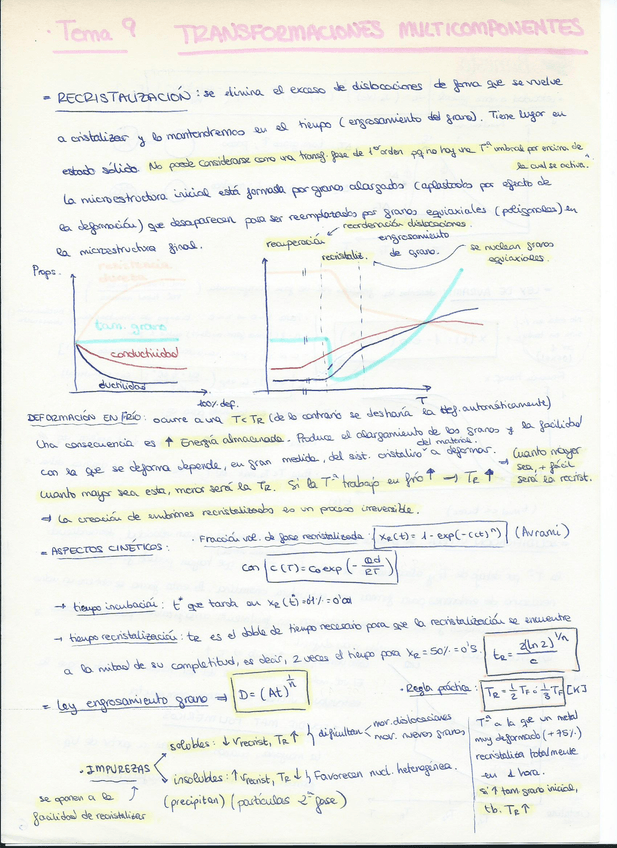 · Tema 9 TRANSFORMACIONES MULTICOMPONENTES
= RECRISTALIZACIÓN : se elimina el exceso de dislocaciones de forma que se vuelve
a cristalizar y lo mantendremos en el tiempo (engrosamiento del grano). Tiene lugar en
estado sólido. No puede considerarse como una transf. fase de 1er orden pq no hay una Tª umbral por encima de
la cual se activa.
La microestructura inicial está formada por granos alargados (aplastados por efecto de
la deformación) que desaparecen para ser reemplazados por granos equiaxiales (poligonales) en
la microestructura final.
reordenación dislocaciones.
recuperación
recristaliz.
engrosamiento
de grano.
se nuclean granos
equiaxiales.
Props.
tam. grano
conductividad
ductilidad
100% def.
T
DEFORMACIÓN EN FRÍO : ocurre a una T < TR (de lo contrario se desharía la def. automáticamente)
Una consecuencia es ↑ Energía almacenada. Produce el alargamiento de los granos y la facilidad
con la que se deforma depende, en gran medida, del sist. cristalino del material a deformar.
cuanto mayor sea esta, menor será la TR. Si la Tª trabajo en frío ↑ → TR ↑
→ Cuanto mayor
sea, + fácil
será la recrist.
⇒ La creación de embriones recristalizados es un proceso irreversible.
= ASPECTOS CINÉTICOS :
· Fracción vol. de fase recristalizada : XR(t) = 1 - exp(-(ct)^n) (Avrami)
con c(T) = co exp (- Qd/RT)
→ tiempo incubación : t* que tarda en XR(t) = 1% = 0'01
→ tiempo recristalización : tR es el doble de tiempo necesario para que la recristalización se encuentre
a la mitad de su completitud, es decir, 2 veces el tiempo para XR = 50% = 0'5.
tR = 2(ln 2)^1/n / c
= Ley engrosamiento grano ⇒ D = (At)^1/n
· Regla práctica : TR = 1/2 TF = 1/3 TF [K]
Tª a la que un metal
muy deformado (+75%)
recristaliza totalmente
en 1 hora.
si ↑ tam. grano inicial,
tb. TR ↑
· IMPUREZAS
solubles : ↓ vrecrist, TR ↑ } dificultan
mov. dislocaciones
mov. nuevos granos
insolubles : ↑ vrecrist, TR ↓ } Favorecen nucl. heterogénea.
(precipitan) (partículas 2ª fase)
se oponen a la
facilidad de recristalizar